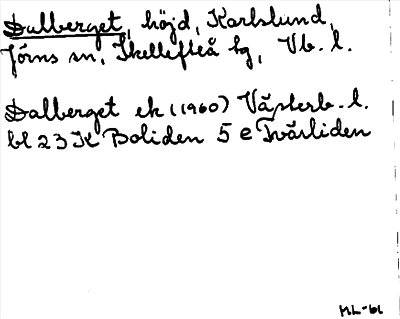 Dalberget, höjd, Karlslund,
Jörns sn, Skellefteå kg, Vb. l.
Dalberget ek (1960) Västerb. l.
bl 23 K Boliden 5 e Tvärliden
ML-61